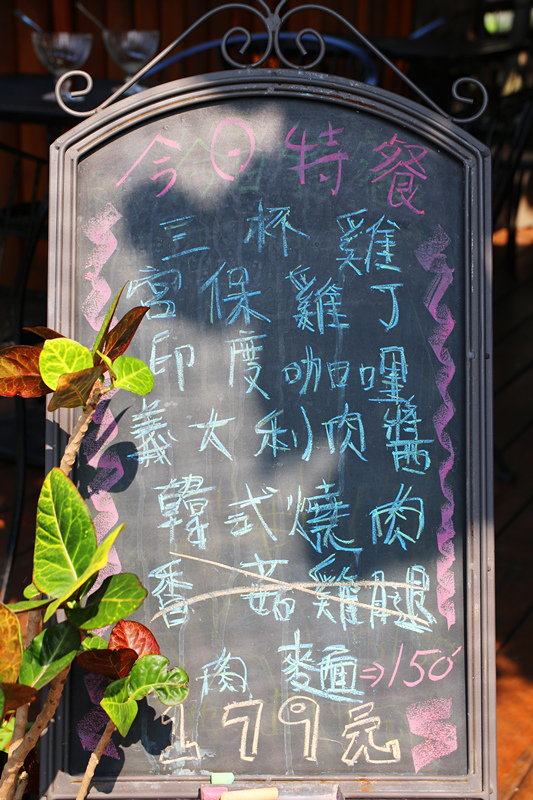 今日特餐
三杯雞
宮保雞丁
印度咖哩
義大利肉醬
韓式燒肉
香菇雞腿
肉麵⇒150
179元